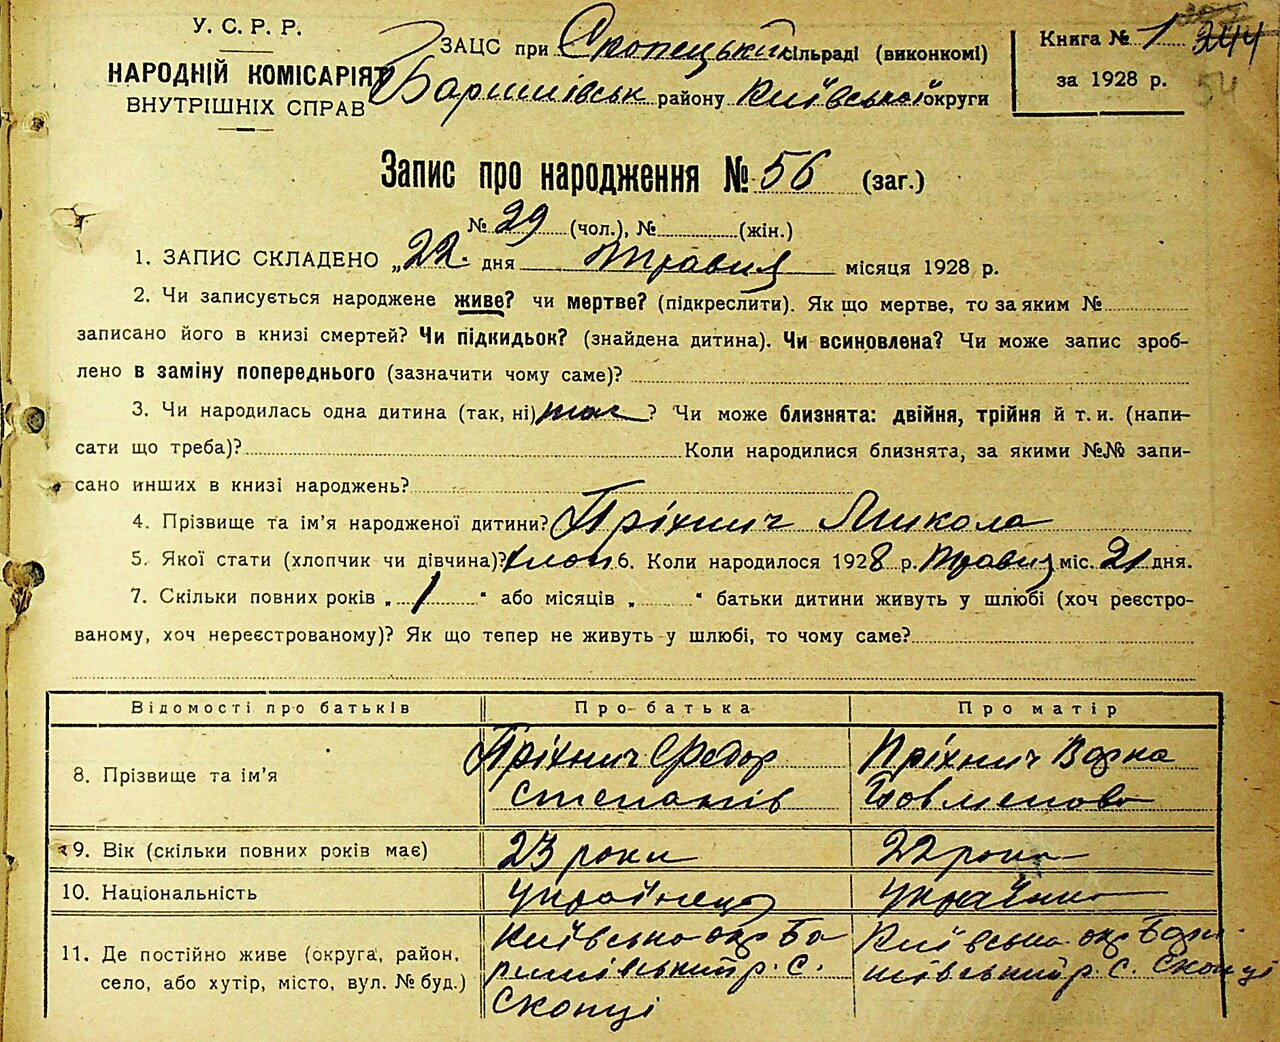 У. С. Р. Р.
НАРОДНІЙ КОМІСАРІЯТ
ВНУТРІШНІХ СПРАВ
ЗАЦС при Скопецький сільраді (виконкомі)
Баришівськ району Київської округи
Книга № 1 244
за 1928 р. 54
Запис про народження № 56 (заг.)
№ 29 (чол.), № (жін.)
1. ЗАПИС СКЛАДЕНО „22 дня Травня місяця 1928 р.
2. Чи записується народжене живе? чи мертве? (підкреслити). Як що мертве, то за яким №
записано його в книзі смертей? Чи підкидьок? (знайдена дитина). Чи всиновлена? Чи може запис зроб-
лено в заміну попереднього (зазначити чому саме)?
3. Чи народилась одна дитина (так, ні) так ? Чи може близнята: двійня, трійня й т. и. (напи-
сати що треба)? Коли народилися близнята, за якими №№ запи-
сано инших в книзі народжень?
4. Прізвище та ім'я народженої дитини? Пріхнич Микола
5. Якої стати (хлопчик чи дівчина)? хлоп 6. Коли народилося 1928 р. Травня міс. 21 дня.
7. Скільки повних років „ 1 “ або місяців „ “ батьки дитини живуть у шлюбі (хоч реєстро-
ваному, хоч нереєстрованому)? Як що тепер не живуть у шлюбі, то чому саме?
Відомості про батьків Про батька Про матір
8. Прізвище та ім'я
Пріхнич Федор
Степанів
Пріхнич Варка
9. Вік (скільки повних років має) 23 роки 22 рока
10. Національність українець українка
11. Де постійно живе (округа, район,
село, або хутір, місто, вул. № буд.)
Київська окр Ба
ришівський р. С.
Скопці
Київська окр Бари
шівський р. С. Скопці